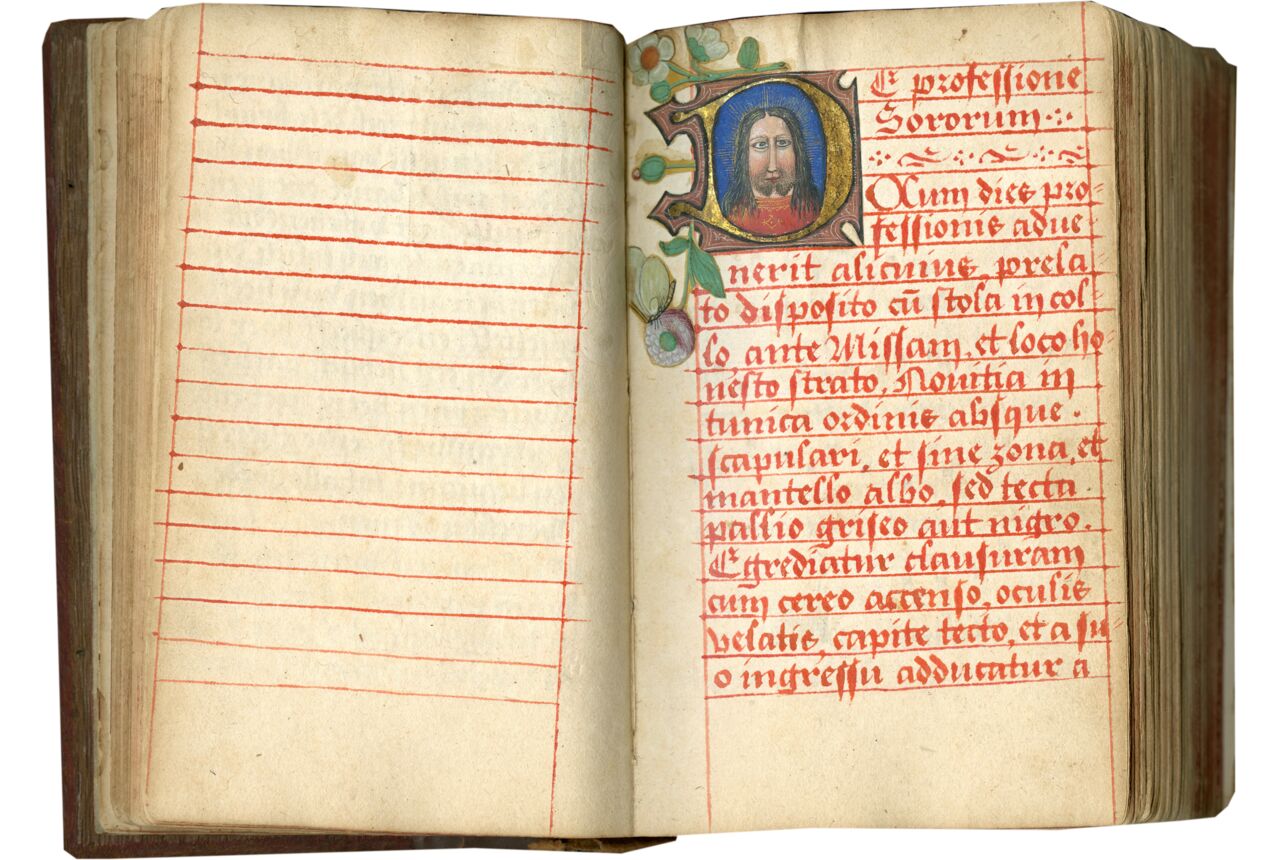 DE professione
Sororum.
Qum dies pro-
fessionis adue-
nerit alicuius, prela-
to disposito cū stola in col-
lo, ante Missam, et loco ho-
nesto strato, Nouitia in
tunica ordinis absque.
scapulari, et sine zona, et
mantello albo, sed tecta.
pallio griseo aut nigro.
Egrediatur clausuram
cum cereo accenso, oculis
velatis, capite tecto, et a su-
o ingressu adducatur a